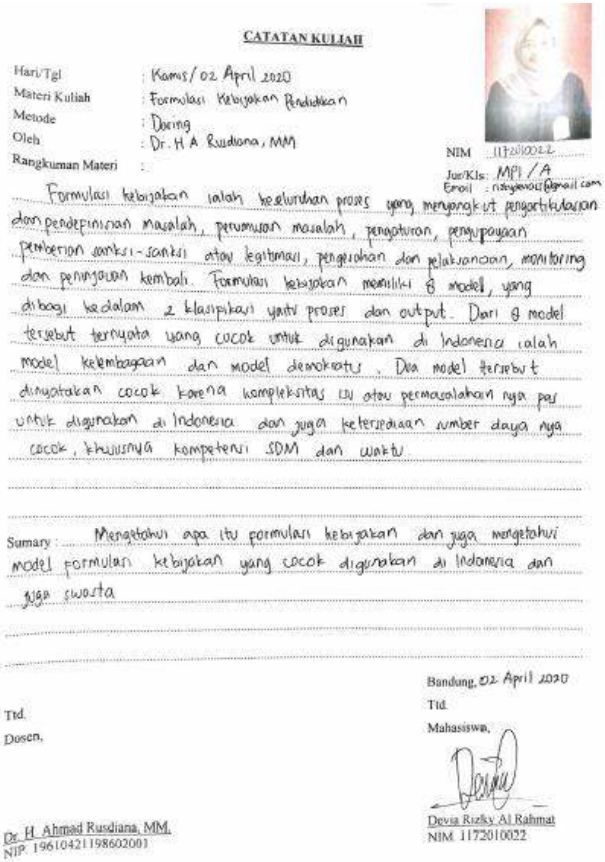 CATATAN KULIAH
Hari/Tgl : Kamis/02 April 2020
Materi Kuliah : Formulasi Kebijakan Pendidikan
Metode : Daring
Oleh : Dr. H A Rusdiana, MM
Rangkuman Materi :
NIM 1172010022
Jur/Kls: MPI / A
Email :
Formulasi kebijakan ialah keseluruhan proses yang menyangkut pengartikulasian
dan pendepinisian masalah, perumusan masalah, pengaturan, pengupayaan
pemberian sanksi-sanksi atau legitimasi, pengesahan dan pelaksanaan, monitoring
dan peninjauan kembali. Formulasi kebijakan memiliki 8 model, yang
dibagi kedalam 2 klasipikasi yaitu proses dan output. Dari 8 model
tersebut ternyata yang cocok untuk digunakan di Indonesia ialah
model kelembagaan dan model demokratis. Dua model tersebut
dinyatakan cocok karena kompleksitas isu atau permasalahan nya pas
untuk digunakan di Indonesia dan juga ketersediaan sumber daya nya
cocok, khususnya kompetensi SDM dan waktu.
Sumary : Mengetahui apa itu pormulasi kebijakan dan juga mengetahui
model formulasi kebijakan yang cocok digunakan di Indonesia dan
juga swasta
Bandung, 02 April 2020
Ttd.
Dosen,
Ttd.
Mahasiswa,
Dr. H. Ahmad Rusdiana, MM.
NIP. 19610421198602001
Devia Rizky Al Rahmat
NIM. 1172010022